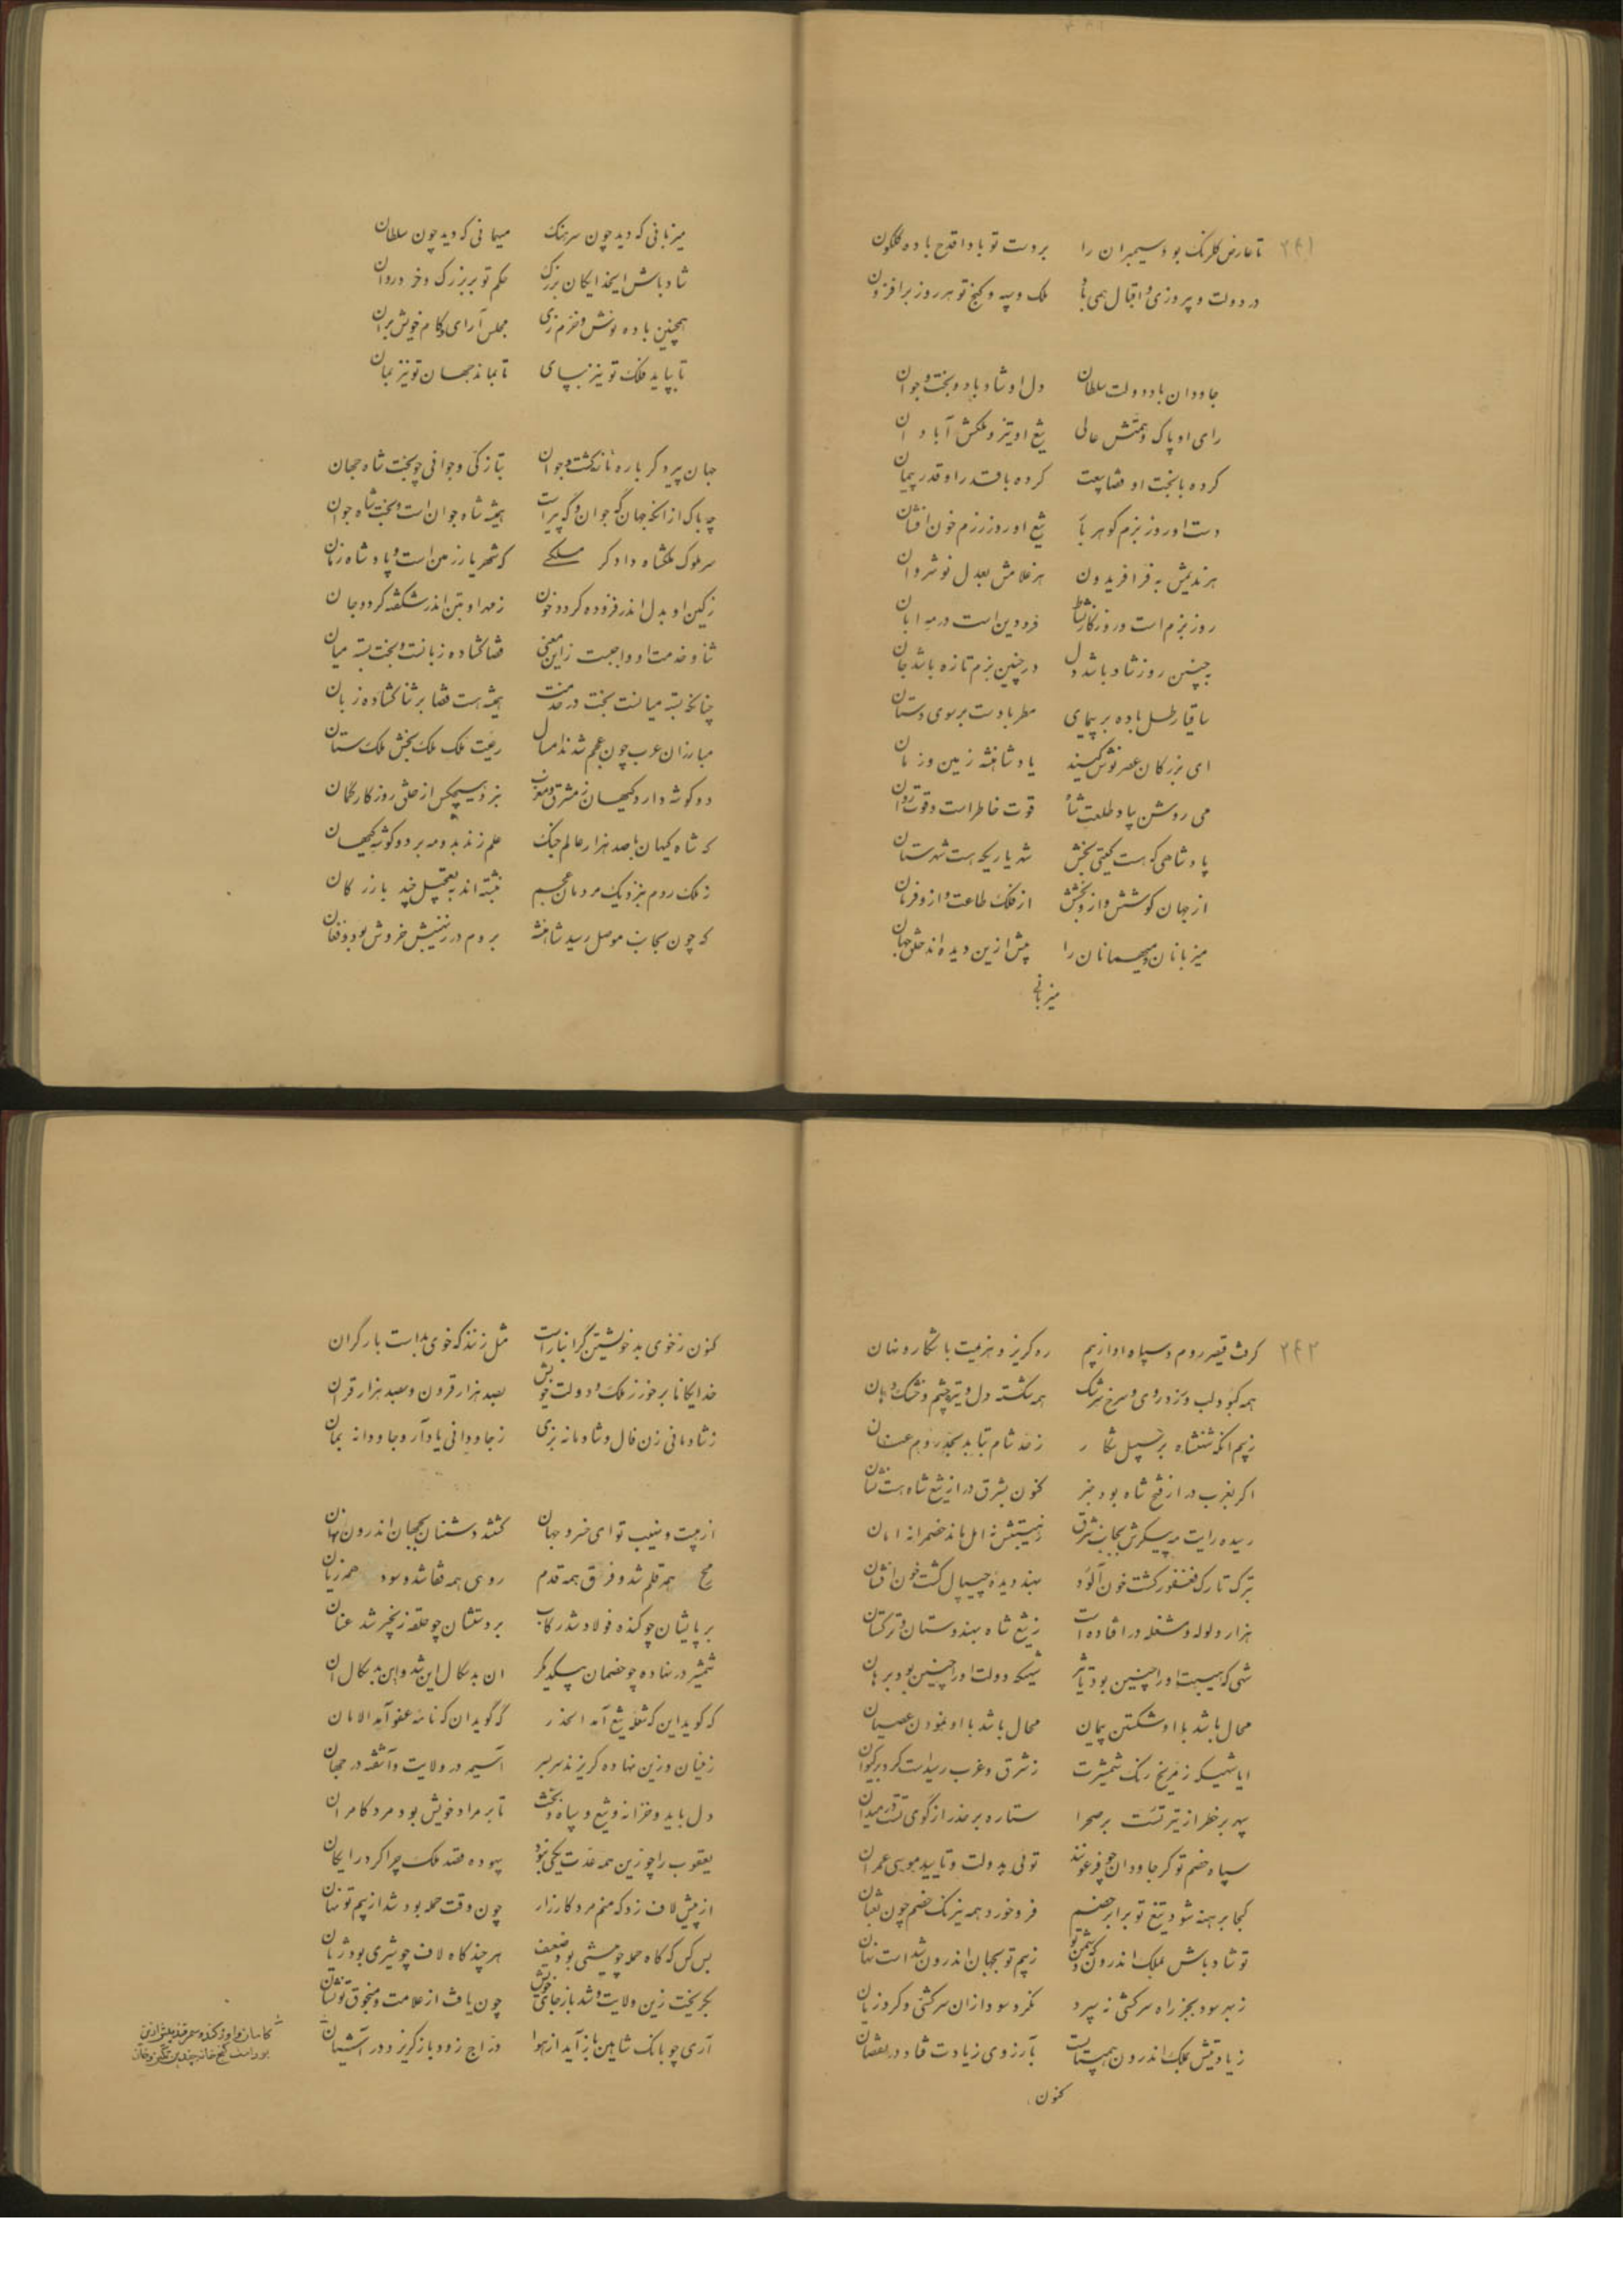 ۲۴۱
تا عارض گلرنگ بود سیمبران را بر دست تو بادا قدح باده گلگون
در دولت و پیروزی و اقبال همی باد ملک و سپه و گنج تو هر روز برافزون
جاودان باد دولت سلطان دل او شاد باد و بخت جوان
رای او پاک و همتش عالی تیغ او تیز و ملکش آبادان
کرده با بخت او قضا بیعت کرده با قدر او قدر پیمان
دست او روز بزم گوهر بار تیغ او روز رزم خون افشان
هر ندیمش به فر افریدون هر غلامش بعدل نوشروان
روز بزم است و روزگار نشاط فرودین است در مه ابان
بچنین روز شاد باشد دل در چنین بزم تازه باشد جان
ساقیا رطل باده بر پیمای مطربا دست بر سوی دستان
ای بزرگان عصر نوش کنید یاد شاهنشه زمین و زمان
می روشن بیاد طلعت شاه قوت خاطر است و قوت روان
پادشاهی که هست گیتی بخش شهریاری که هست شهرستان
از جهان کوشش و ازو بخشش از فلک طاعت و ازو فرمان
میزبانان و میهمانان را پیش ازین دیده اند خلق جهان
میزبانی
میزبانی که دید چون سرهنگ میهمانی که دید چون سلطان
شاد باش ایخدایگان بزرگ حکم تو بر بزرگ و خرد روان
همچنین باده نوش و خرم زی مجلس آرای و کام خویش بران
تا بپاید فلک تو نیز بپای تا بماند جهان تو نیز بمان
جهان پیر دگر باره تازه گشت و جوان بتازگی و جوانی چو بخت شاه جهان
چه باک از آنکه جهان گه جوان و گه پیر است همیشه شاه جوان است و بخت شاه جوان
سر ملوک ملکشاه دادگر ملکی که شهریار زمین است و پادشاه زمان
ز کین او بدل اندر فزوده گردد خون ز مهر او بتن اندر شکفته گردد جان
ثنا و خدمت او واجبست زاین معنی قضا گشاده زبانست و بخت بسته میان
چنانکه بسته میانست بخت در خدمت همیشه هست قضا بر ثنا گشاده زبان
مبارزان عرب چون عجم شدند امسال رعیت ملک ملک بخش ملک ستان
دو گوشه دارد کیهان ز مشرق و مغرب نبرد هیچکس از خلق روزگار گمان
که شاه کیهان با صد هزار عالم جنگ علم زند بدو مه بر دو گوشه کیهان
ز ملک روم بنزدیک مردمان عجم نبشته اند بتعجیل چند بازرگان
که چون بجانب موصل رسید شاهنشه بروم در ز نهیبش خروش بود و فغان
۲۴۲
گرفت قیصر روم و سپاه او از بیم ره گریز و هزیمت باشکار و نهان
همه کبود لب و زرد روی و سرخ سرشک همه شکسته دل و تیره چشم و خشک دهان
ز بیم آنکه شهنشاه بر سبیل شکار ز حد شام بتابد بحد روم عنان
اگر بغرب در از فتح شاه بود خبر کنون بشرق در از تیغ شاه هست نشان
رسیده رایت مه پیکرش بجانب شرق ز هیبتش نه امل ماند خصم را نه امان
بترک تارک فغفور گشت خون آلود بهند دیده چیپال گشت خون افشان
هزار ولوله و مشغله در افتاده است ز تیغ شاه بهندوستان و ترکستان
شهی که هیبت او را چنین بود تأثیر شهیکه دولت او را چنین بود برهان
محال باشد با او شکستن پیمان محال باشد با او نمودن عصیان
ایا شهیکه ز مریخ رنگ شمشیرت ز شرق و غرب رسیدست گرد بر کیوان
سپهر بر خطر از تیر تست بر صحرا ستاره بر حذر از گوی تست در میدان
سپاه خصم تو گر جاودان چو فرعونند تویی بدولت و تایید موسی عمران
کجا برهنه شود تیغ تو برابر خصم فرو خورد همه نیرنگ خصم چون ثعبان
تو شاد باش بملک اندرون که دشمن تو ز بیم تو بجهان اندرون شد است نهان
ز بهر سود بجز راه سرکشی نسپرد نکرد سود ازان سرکشی و کرد زیان
زیادتیش بملک اندرون همی بایست بآرزوی زیادت فتاد در نقصان
کنون
کنون ز خوی بد خویشتن گرانبار است مثل زنند که خوی بد است بار گران
خدایگانا برخور ز ملک و دولت خویش بصد هزار قرون و بصد هزار قران
ز شادمانی زن فال و شادمانه بزی ز جاودانی یاد آر و جاودانه بمان
از هیبت و نهیب تو ای خسرو جهان گشتند دشمنان بجهان اندرون نهان
همه قلم شد و فرق همه قدم روی همه قفا شد و سود همه زیان
بر پایشان چو کنده فولاد شد رکاب بر دستشان چو حلقه زنجیر شد عنان
شمشیر در نهاده چو خصمان بیکدیگر ان بدسگال این شد و این بدسگال ان
که گوید این که شعله تیغ آمد الحذر گه گوید ان که نامه عفو آمد الامان
زینان و زین نهاده گریزند سر بسر آسیمه در ولایت و آشفته در جهان
دل باید و خزانه و تیغ و سپاه و بخت تا بر مراد خویش بود مرد کامران
یعقوب را چو زین همه عدت یکی نبود بیهوده قصد ملک چرا کرد رایگان
از پیش لاف زد که منم مرد کارزار چون وقت حمله بود شد از بیم تو نهان
بس کس که گاه حمله چو میشی بود ضعیف هر چند گاه لاف چو شیری بود ژیان
بگریخت زین ولایت و شد باز جای خویش چون یافت از علامت و منجوق تو نشان
آری چو بانگ شاهین باز آید از هوا دراج زود باز گریزد در آشیان